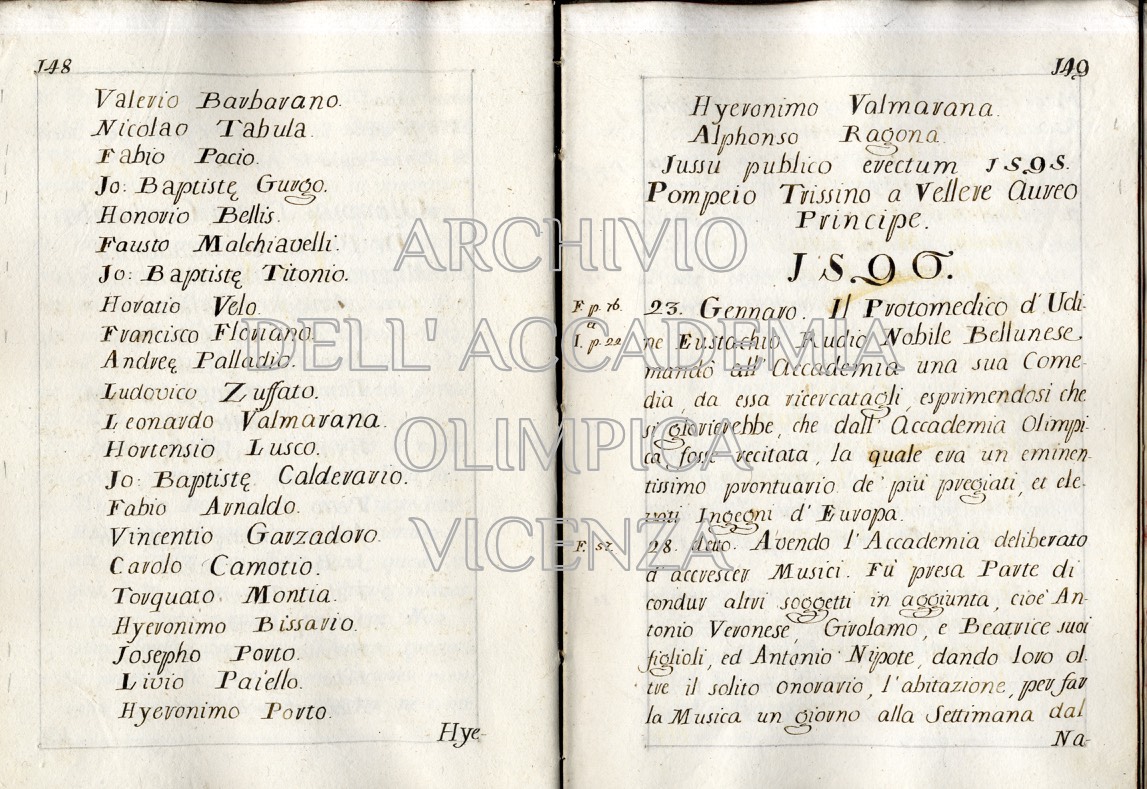 148
Valerio Barbarano.
Nicolao Tabula.
Fabio Pacio.
Jo: Baptistę Gurgo.
Honorio Bellis.
Fausto Malchiavelli.
Jo: Baptistę Titonio.
Horatio Velo.
Francisco Floriano.
Andreę Palladio.
Ludovico Zuffato.
Leonardo Valmarana.
Hortensio Lusco.
Jo: Baptistę Calderario.
Fabio Arnaldo.
Vincentio Garzadoro.
Carolo Camotio.
Torquato Montia.
Hyeronimo Bissario.
Josepho Porto.
Livio Paiello.
Hyeronimo Porto.
Hye-
149
Hyeronimo Valmarana.
Alphonso Ragona.
Jussu publico erectum 1595.
Pompeio Trissino a Vellere Aureo
Principe.
1596.
F. p. 16.
a
I. p. 22
23. Gennaro. Il Protomedico d' Udi-
ne Eustachio Rudio Nobile Bellunese
mandò all' Accademia una sua Come-
dia, da essa ricercatagli, esprimendosi che
si glorierebbe, che dall' Accademia Olimpi-
ca fosse recitata, la quale era un eminen-
tissimo prontuario de' più pregiati, et ele-
vati Ingegni d' Europa.
F. 57.
28. detto. Avendo l' Accademia deliberato
d' accrescer Musici. Fù presa Parte di
condur altri soggetti in aggiunta, cioè An-
tonio Veronese, Girolamo, e Beatrice suoi
figlioli, ed Antonio Nipote, dando loro ol-
tre il solito onorario, l' abitazione, per far
la Musica un giorno alla Settimana dal
Na-
ARCHIVIO
DELL'ACCADEMIA
OLIMPICA
VICENZA